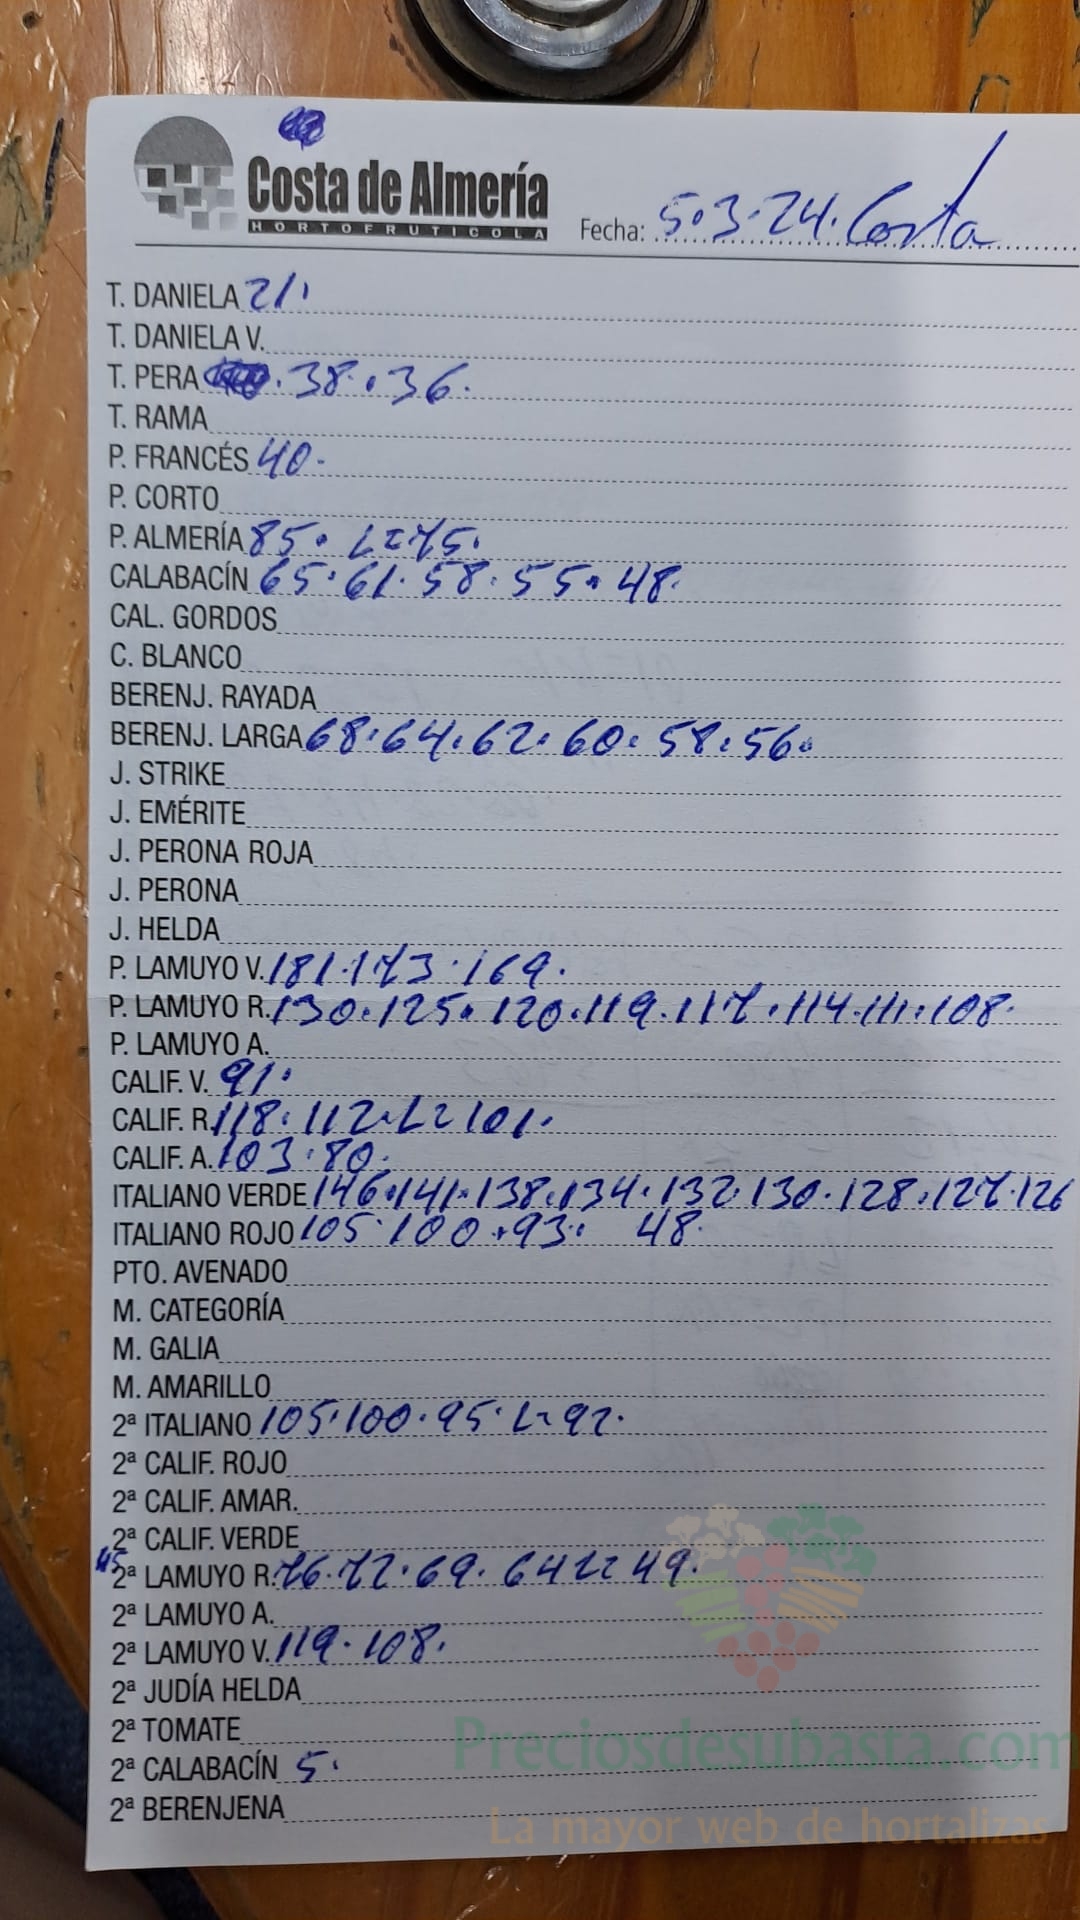 Costa de Almería
HORTOFRUTICOLA
Fecha: 5.3.24. Costa
T. DANIELA 21.
T. DANIELA V.
T. PERA . 38. . 36.
T. RAMA
P. FRANCÉS 40.
P. CORTO
P. ALMERÍA 85. L=75.
CALABACÍN 65. 61. 58. 55. 48.
CAL. GORDOS
C. BLANCO
BERENJ. RAYADA
BERENJ. LARGA 68. 64. 62. 60. 58. 56.
J. STRIKE
J. EMÉRITE
J. PERONA ROJA
J. PERONA
J. HELDA
P. LAMUYO V. 181. 173. 169.
P. LAMUYO R. 130. 125. 120. 119. 117. 114. 111. 108.
P. LAMUYO A.
CALIF. V. 91.
CALIF. R. 118. 112. L= 101.
CALIF. A. 103. 80.
ITALIANO VERDE 146. 141. 138. 134. 132. 130. 128. 127. 126
ITALIANO ROJO 105. 100. 93. 48.
PTO. AVENADO
M. CATEGORÍA
M. GALIA
M. AMARILLO
2ª ITALIANO 105. 100. 95. L= 92.
2ª CALIF. ROJO
2ª CALIF. AMAR.
2ª CALIF. VERDE
45 2ª LAMUYO R. 76. 72. 69. 64 L= 49.
2ª LAMUYO A.
2ª LAMUYO V. 119. 108.
2ª JUDÍA HELDA
2ª TOMATE
2ª CALABACÍN 5.
2ª BERENJENA
Preciosdesubasta.com
La mayor web de hortalizas